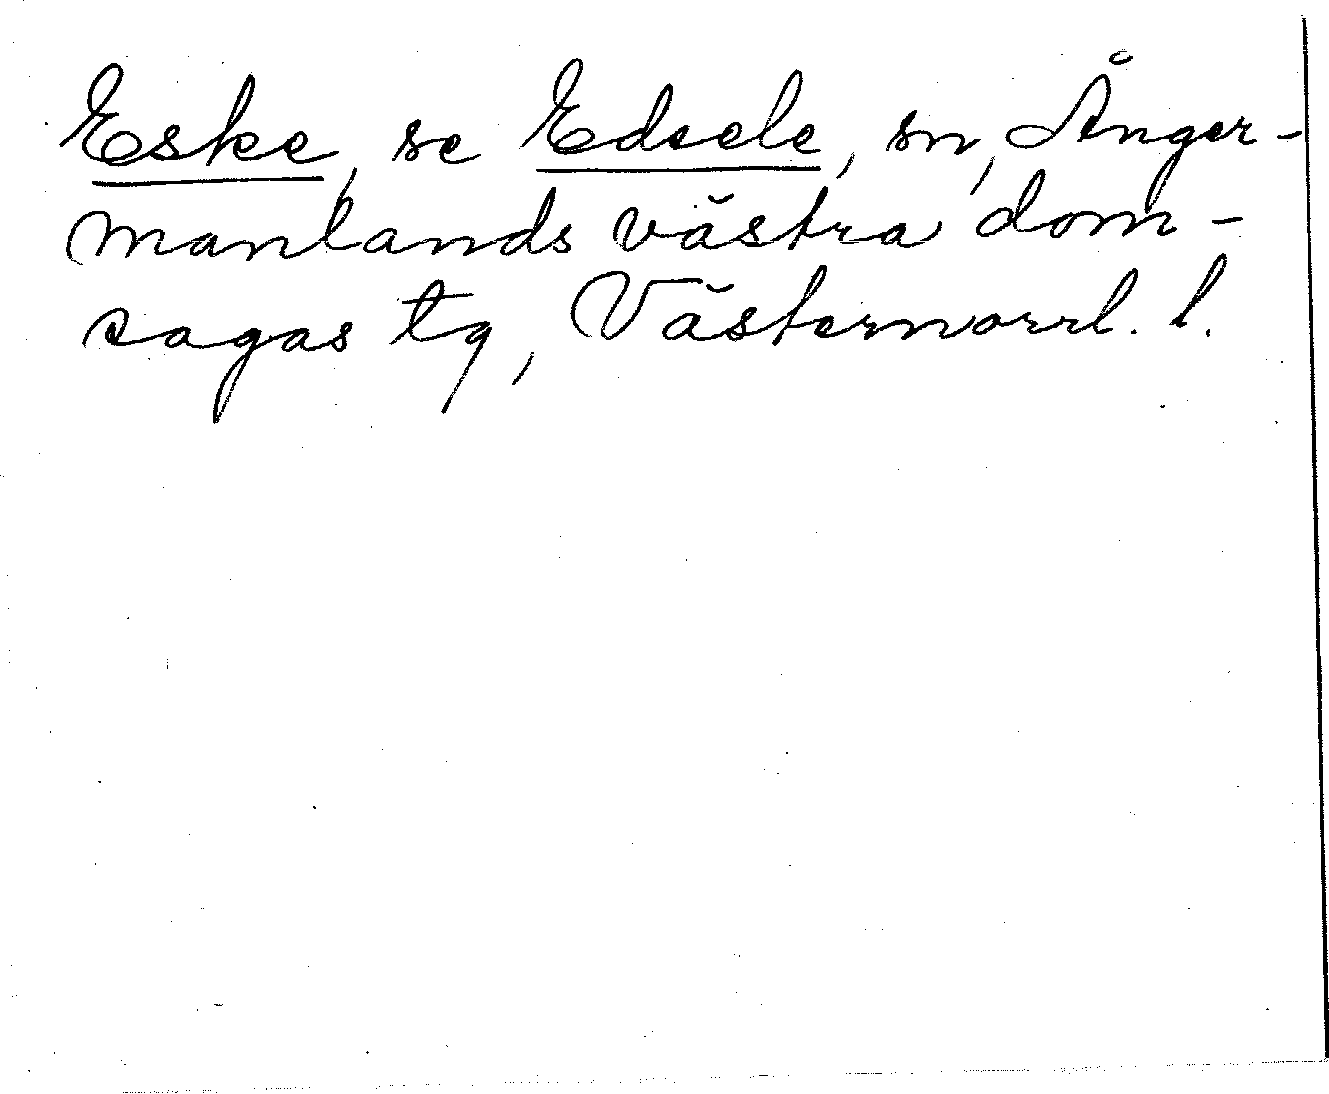 Eske, se Edsele, sn, Ånger-
manlands västra dom-
sagas tg, Västernorrl. l.